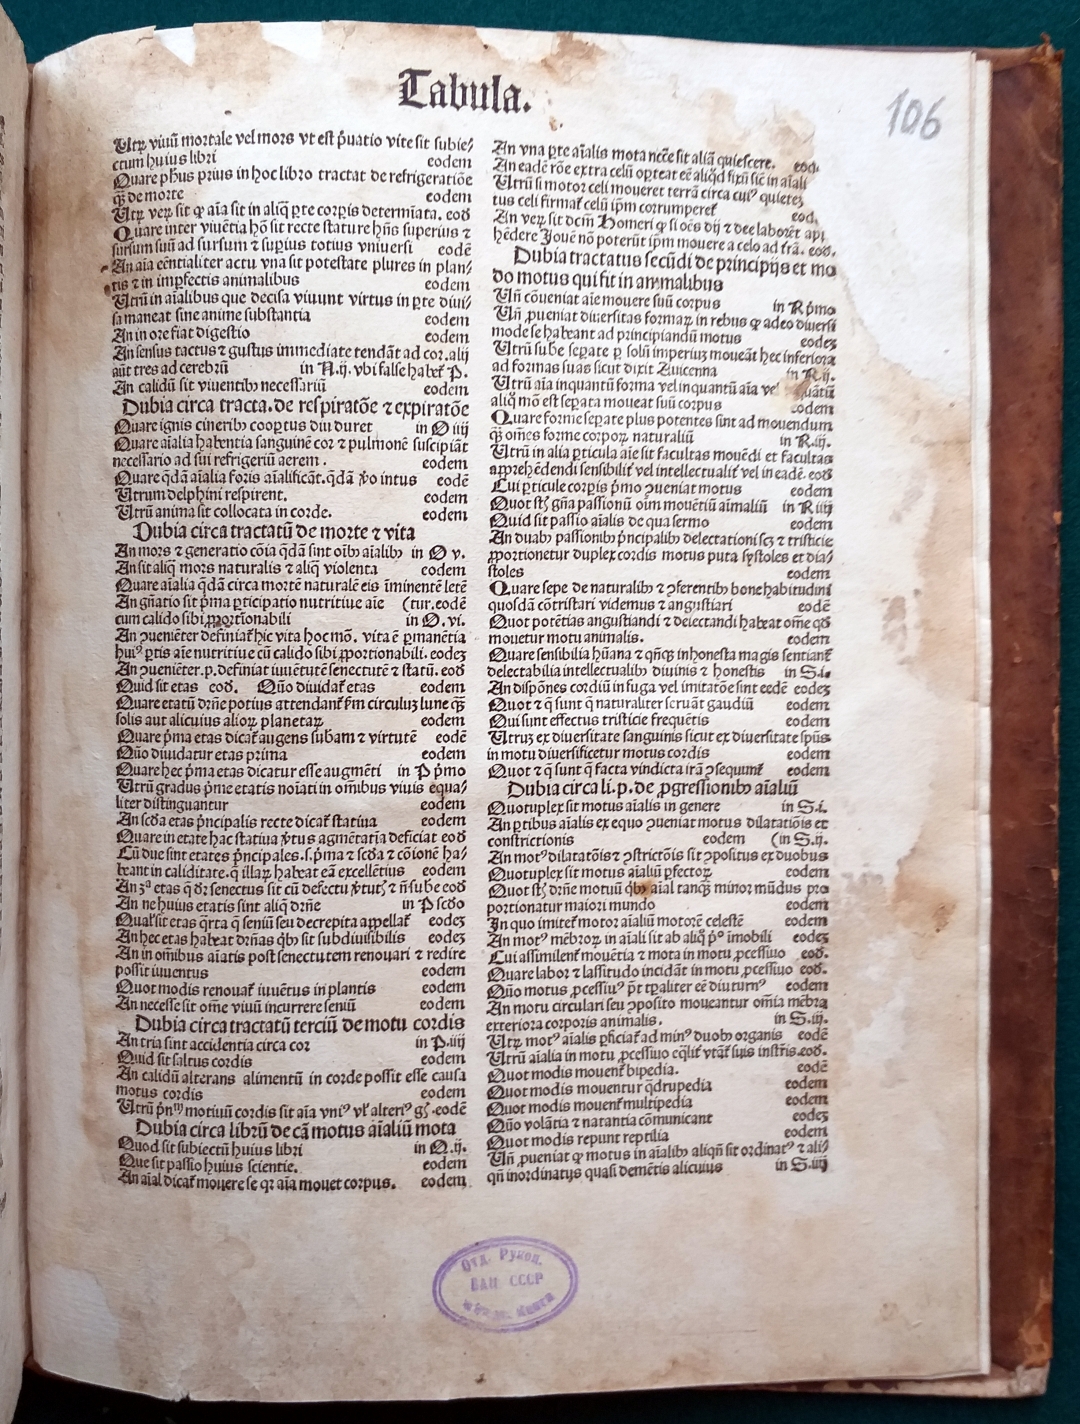 Tabula.
106
Utꝝ viuũ mortale vel mors vt est p̃uatio vite sit subie⸗
ctum huius libri eodem
Quare ph̃us prius in hoc libro tractat de refrigeratiõe
q̃ꝫ de morte eodem
Utꝝ veꝝ sit ꝙ aĩa sit in aliq̃ ꝑte corꝑis determĩata. eoð
Quare inter viuẽtia hõ sit recte stature hñs superius ⁊
sursum suũ ad sursum ⁊ supius totius vniuersi eodẽ
An aĩa eẽntialiter actu vna sit potestate plures in plan⸗
tis ⁊ in imꝑfectis animalibus eodem
Utrũ in aĩalibus que decisa viuunt virtus in ꝑte diui⸗
sa maneat sine anime substantia eodem
An in ore fiat digestio eodem
An sensus tactus ⁊ gustus immediate tendãt ad cor. alij
aũt tres ad cerebrũ in N.ij. vbi false habet̃ P.
An calidũ sit viuentibꝰ necessariũ eodem
Dubia circa tracta. de respiratõe ⁊ expiratõe
Quare ignis cineribꝰ cooꝑtus diu duret in O iiij
Quare aĩalia habentia sanguinẽ cor ⁊ pulmonẽ suscipiãt
necessario ad sui refrigeriũ aerem. eodem
Quare q̃dã aĩalia foris aĩalificãt. q̃dã ṽo intus eodẽ
Utrum delphini respirent. eodem
Utrũ anima sit collocata in corde. eodem
Dubia circa tractatũ de morte ⁊ vita
An mors ⁊ generatio cõia q̃dã sint oĩbꝰ aĩalibꝰ in O v.
An sit aliq̃ mors naturalis ⁊ aliq̃ violenta eodem
Quare aĩalia q̃dã circa mortẽ naturalẽ eis ĩminentẽ letẽ
An gñatio sit p̃ma ꝑticipatio nutritiue aĩe (tur. eodẽ
cum calido sibi ꝓportionabili in O. vi.
An ↄueniẽter definiat̃ hic vita hoc mõ. vita ẽ ꝑmanẽtia
huiꝰ ꝑtis aĩe nutritiue cũ calido sibi ꝓportionabili. eodeꝫ
An ↄueniẽter. p. definiat iuuẽtutẽ senectutẽ ⁊ statũ. eoð
Quid sit etas eoð. Quõ diuidat̃ etas eodem
Quare etatũ drñe potius attendant̃ ẜm circuluꝫ lune q̃ꝫ
solis aut alicuius alioꝝ planetaꝝ eodem
Quare p̃ma etas dicat̃ augens subam ⁊ virtutẽ eodẽ
Quõ diuidatur etas prima eodem
Quare hec p̃ma etas dicatur esse augmẽti in P p̃mo
Utrũ gradus p̃me etatis noĩati in omĩbus viuis equa⸗
liter distinguantur eodem
An scða etas p̃ncipalis recte dicat̃ statiua eodem
Quare in etate hac statiua ṽtus agmẽtatĩa deficiat eoð
Cũ due sint etates p̃ncipales. s. p̃ma ⁊ scða ⁊ cõionẽ ha⸗
beant in caliditate. q̃ illaꝝ habeat eã excellẽtius eodem
An 3ᵃ etas q̃ ðr senectus sit cũ defectu ṽtut̃ ⁊ ñ sube eoð
An ne huius etatis sint aliq̃ drñe in P scðo
Qual̃ sit etas q̃rta q̃ seniũ seu decrepita appellat̃ eodeꝫ
An hec etas habeat drñas q̃bꝰ sit subdiuisibilis eodeꝫ
An in omĩbus aĩatis post senectutem renouari ⁊ redire
possit iuuentus eodem
Quot modis renouat̃ iuuẽtus in plantis eodem
An necesse sit om̃e viuũ incurrere seniũ eodem
Dubia circa tractatũ terciũ de motu cordis
An tria sint accidentia circa cor in P.iiij
Quid sit saltus cordis eodem
An calidũ alterans alimentũ in corde possit esse causa
motus cordis eodem
Utrũ p̃nᵐ motiuũ cordis sit aĩa vniꝰ vl̃ alteriꝰ gñ̃s. eodẽ
Dubia circa librũ de cã motus aĩaliũ mota
Quod sit subiectũ huius libri in Q.ij.
Que sit passio huius scientie. eodem
An aĩal dicat̃ mouere se qꝛ aĩa mouet corpus. eodem
An vna ꝑte aĩalis mota necẽ sit aliã quiescere. eod.
An eadẽ rõe extra celũ oꝑteat eẽ aliq̃d fixũ sic̃ in aĩali
Utrũ si motor celi moueret terrã circa cuiꝰ quieteꝫ
tus celi firmat̃ celũ ip̃m corrumperet̃ eod.
An veꝝ sit dcm̃ Homeri ꝙ si oẽs dij ⁊ dee laborẽt
hẽdere Jouẽ nõ poterũt ip̃m mouere a celo ad fr̃ã. eoð.
Dubia tractatus secũdi de principijs et mo
do motus qui fit in animalibus
Un̄ cõueniat aĩe mouere suũ corpus in R p̃mo
Un̄ ꝓueniat diuersitas formaꝝ in rebus ꝙ adeo diuersi
mode se habeant ad principiandũ motus eodeꝫ
Utrũ sube seꝑate ꝑ solũ imperiuꝫ moueãt hec inferiora
ad formas suas sicut dixit Auicenna in R ij.
Utrũ aĩa inquantũ forma vel inquantũ aĩa vel
aliq̃ mõ est seꝑata moueat suũ corpus eodem
Quare forme seꝑate plus potentes sint ad mouendum
q̃ꝫ omẽs forme corpoꝝ naturaliũ in R.iij.
Utrũ in alia ꝑticula aĩe sit facultas mouẽdi et facultas
apprehẽdendi sensibilit̃ vel intellectualit̃ vel in eadẽ. eoð
Cui ꝑticule corꝑis p̃mo ↄueniat motus eodem
Quot st̃ gñ̃a passionũ oĩm mouẽtiũ aĩmaliũ in R iiij
Quid sit passio aĩalis de qua sermo eodem
An duabꝰ passionibꝰ p̃ncipalibꝰ delectationi scꝫ ⁊ tristicie
ꝓportionetur duplex cordis motus puta systoles et dia⸗
stoles eodem
Quare sepe de naturalibꝰ ⁊ ↄferentibꝰ bone habitudini
quosdã cõtristari videmus ⁊ angustiari eodẽ
Quot potẽtias angustiandi ⁊ delectandi habeat om̃e qð
mouetur motu animalis. eodem
Quare sensibilia hũana ⁊ q̃nc̃ꝫ inhonesta magis sentiant̃
delectabilia intellectualibꝰ diuinis ⁊ honestis in S.i.
An dispõnes cordiũ in fuga vel imitatõe sint eedẽ eodeꝫ
Quot ⁊ q̃ sunt q̃ naturaliter seruãt gaudiũ eodem
Qui sunt effectus tristicie frequẽtis eodem
Utruꝫ ex diuersitate sanguinis sicut ex diuersitate spũs
in motu diuersificetur motus cordis eodem
Quot ⁊ q̃ sunt q̃ facta vindicta irã ↄsequunt̃ eodem
Dubia circa li. p. de ꝓgressionibꝰ aĩaliũ
Quotuplex sit motus aĩalis in genere in S.i.
An ꝑtibus aĩalis ex equo ↄueniat motus dilatatiõis et
constrictionis eodem (in S.ij.
An motꝰ dilatatõis ⁊ ↄstrictõis sit ↄpositus ex duobus
Quotuplex sit motus aĩaliũ ꝑfectoꝝ eodem
Quot st̃ drñe motuũ q̃bꝰ aĩal tanq̃ꝫ minor mũdus pro
portionatur maiori mundo eodem
In quo imitet̃ motor aĩaliũ motorẽ celestẽ eodem
An motꝰ mẽbroꝝ in aĩali sit ab aliq̃ pº imobili eodeꝫ
Cui assimilent̃ mouẽtia ⁊ mota in motu ꝓcessiuo eoð.
Quare labor ⁊ lassitudo incidãt in motu ꝓcessiuo eoð.
Quõ motus ꝓcessiuꝰ p̃t tꝑaliter eẽ diuturnꝰ eodem
An motu circulari seu ↄposito moueantur om̃ia mẽbra
exteriora corporis animalis. in S.iij.
Utꝝ motꝰ aĩalis ꝑficiat̃ ad minꝰ duobꝰ organis eodẽ
Utrũ aĩalia in motu ꝓcessiuo eq̃lit̃ vtãt̃ suis instr̃is. eoð.
Quot modis mouent̃ bipedia. eodẽ
Quot modis mouentur q̃drupedia eodem
Quot modis mouent̃ multipedia eodem
Quõ volãtia ⁊ natantia cõmunicant eodeꝫ
Quot modis repunt reptilia eodem
Un̄ ꝓueniat ꝙ motus in aĩalibꝰ aliqñ sit ordinatꝰ ⁊ ali⸗
qñ inordinatꝰ quasi demẽtis alicuius in S.iiij
Отд. Рукоп.
БАН СССР